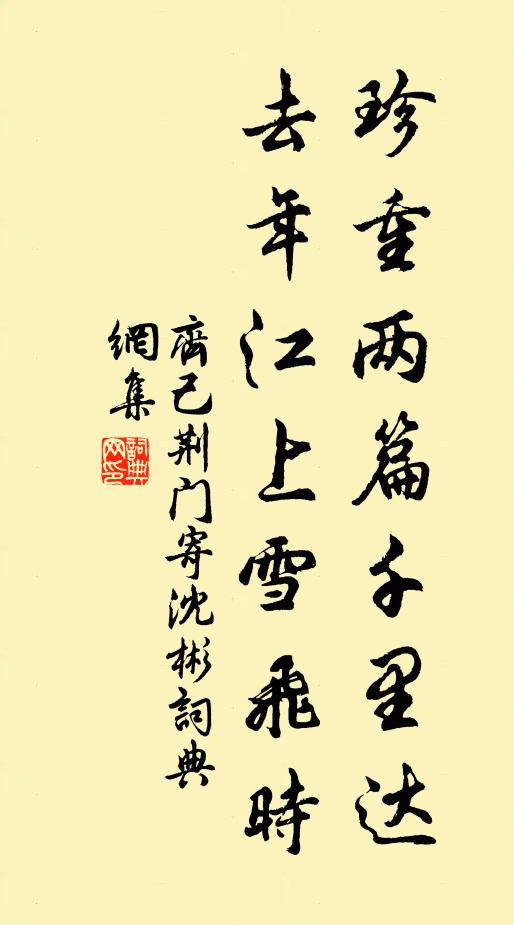 珍重两篇千里达
去年江上雪飛時
齊己荆门寄沈彬詞典
網集
詞典網印